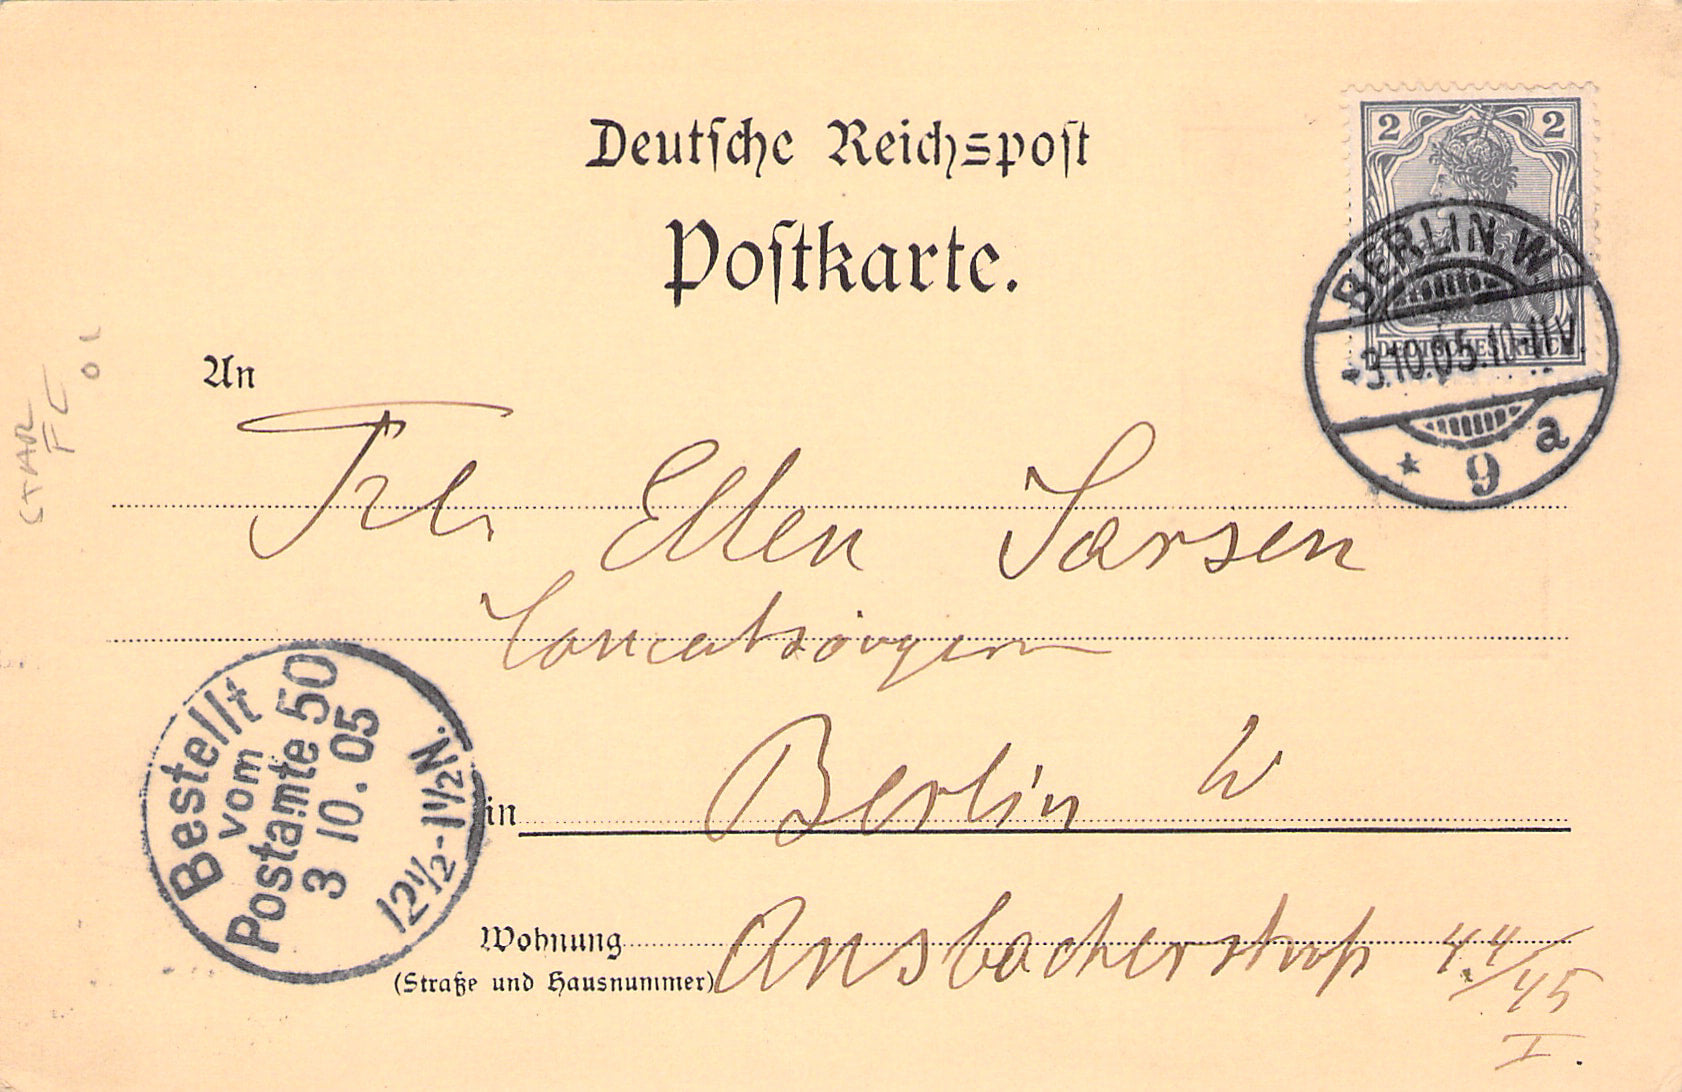 Deutsche Reichspost
Postkarte.
2 2
DEUTSCHES REICH
BERLIN, W
-3.10.05.10-11V.
* 9 a
An
Frl. Ellen Sarsen
Concertsängerin
in Berlin W
Wohnung Ansbacherstraße 44/45
(Straße und Hausnummer)
I.
Bestellt
vom
Postamte 50
3 10. 05
12½-1½N.